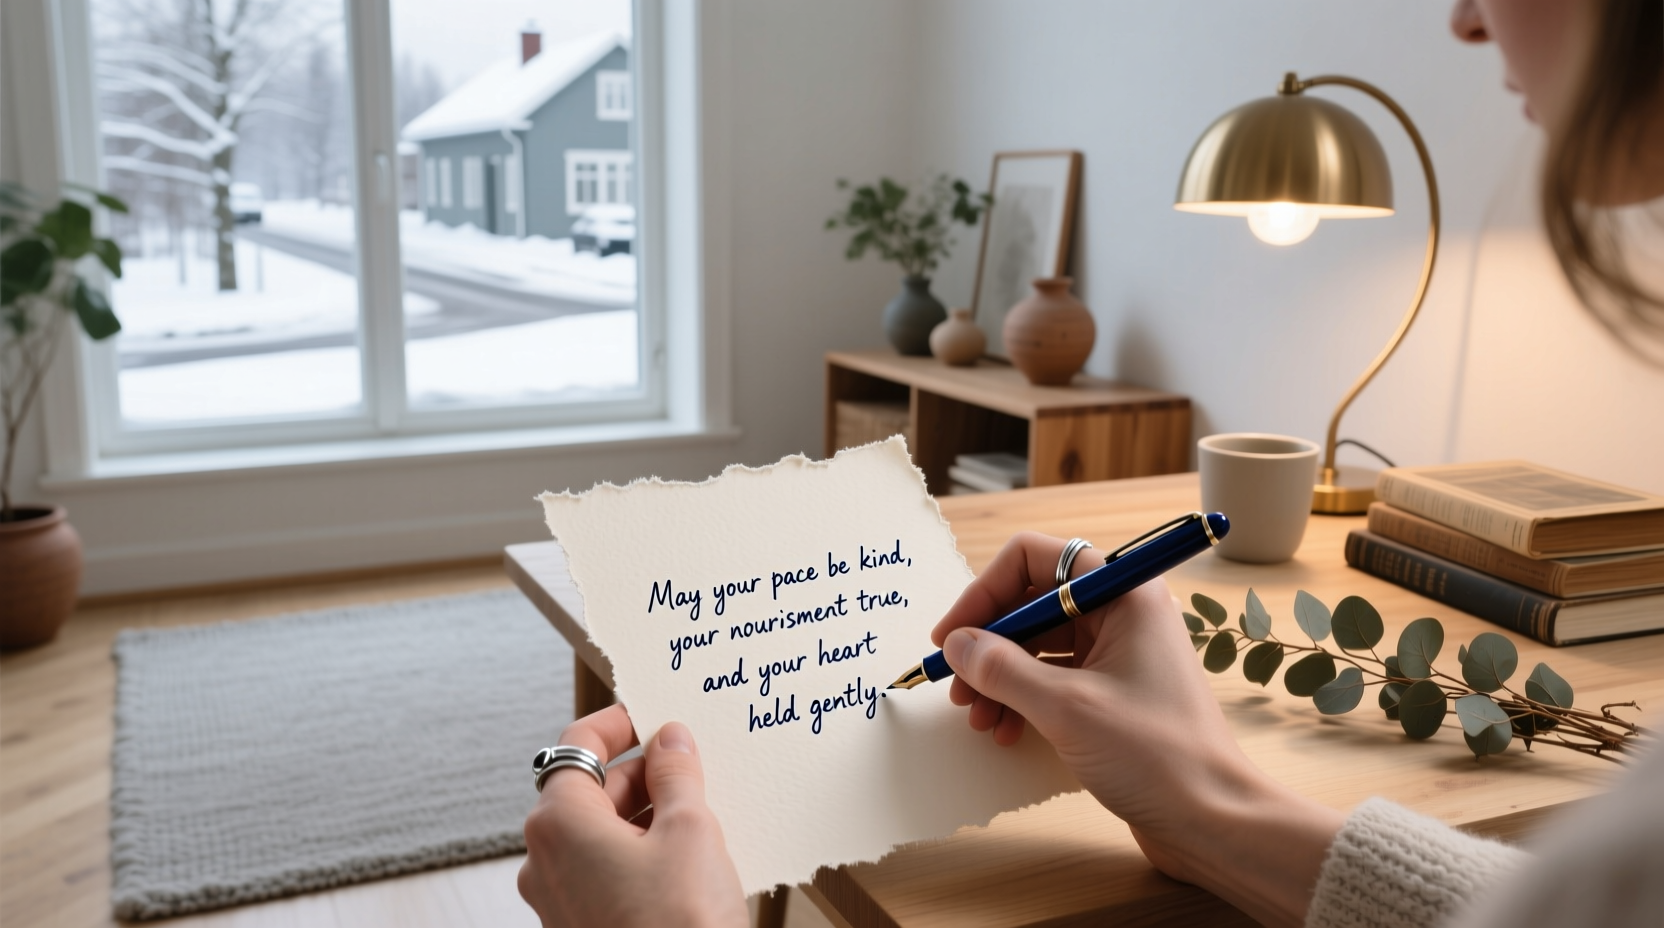 May your pace be kind,
your nourisment true,
and your heart
held gently.